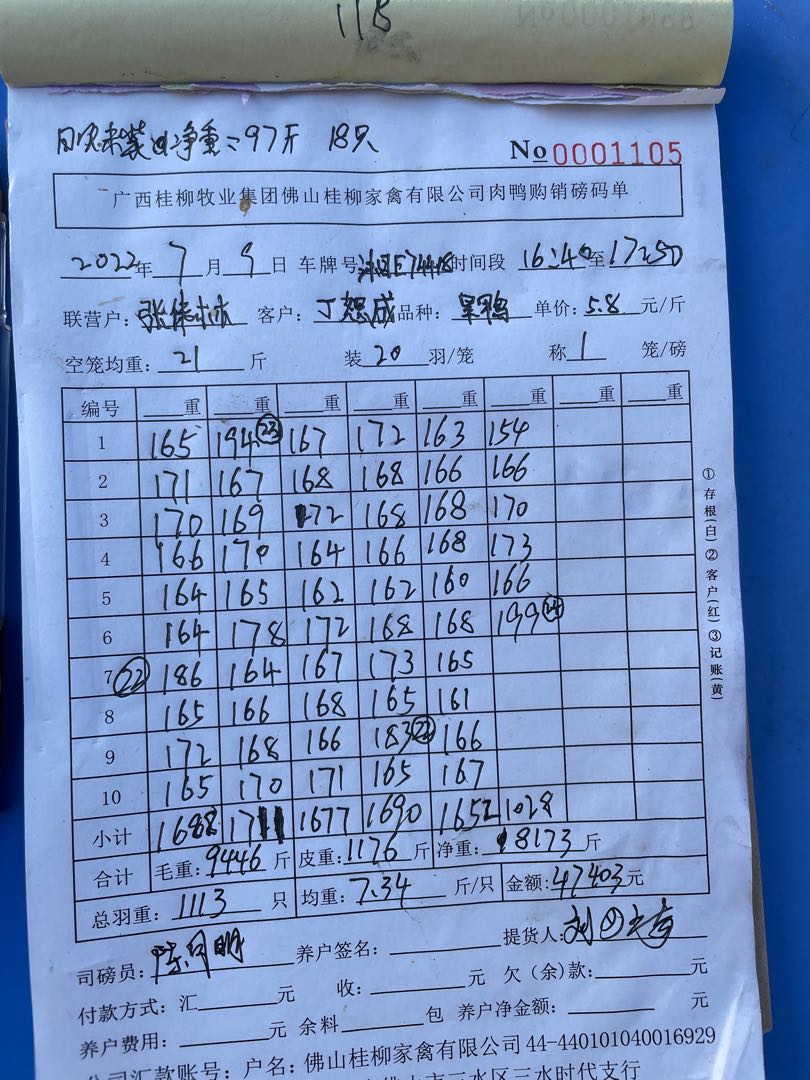 11B
净重=97斤 18只
No 0001105
广西桂柳牧业集团佛山桂柳家禽有限公司肉鸭购销磅码单
2022年 7 月 9 日 车牌号 时间段 16:40 至 17:50
联营户: 客户: 品种: 单价: 5.8 元/斤
空笼均重: 21 斤 装 20 羽/笼 称 1 笼/磅
编号 重 重 重 重 重 重 重 重
1 165 194 23 167 172 163 154
2 171 167 168 168 166 166
3 170 169 172 168 168 170
4 166 170 164 166 168 173
5 164 165 162 162 160 166
6 164 178 172 168 168 199 24
7 22 186 164 167 173 165
8 165 166 168 165 161
9 172 168 166 183 22 166
10 165 170 171 165 167
小计 1688 1711 1677 1690 1652 1028
合计 毛重: 9446 斤 皮重: 1176 斤 净重: 8173 斤
总羽重: 1113 只 均重: 7.34 斤/只 金额: 47403 元
司磅员: 养户签名: 提货人:
付款方式: 汇 元 收: 元 欠(余)款: 元
养户费用: 元 余料 包 养户净金额: 元
公司汇款账号: 户名: 佛山桂柳家禽有限公司 44-440101040016929
佛山市三水区三水时代支行
①存根(白)②客户(红)③记账(黄)